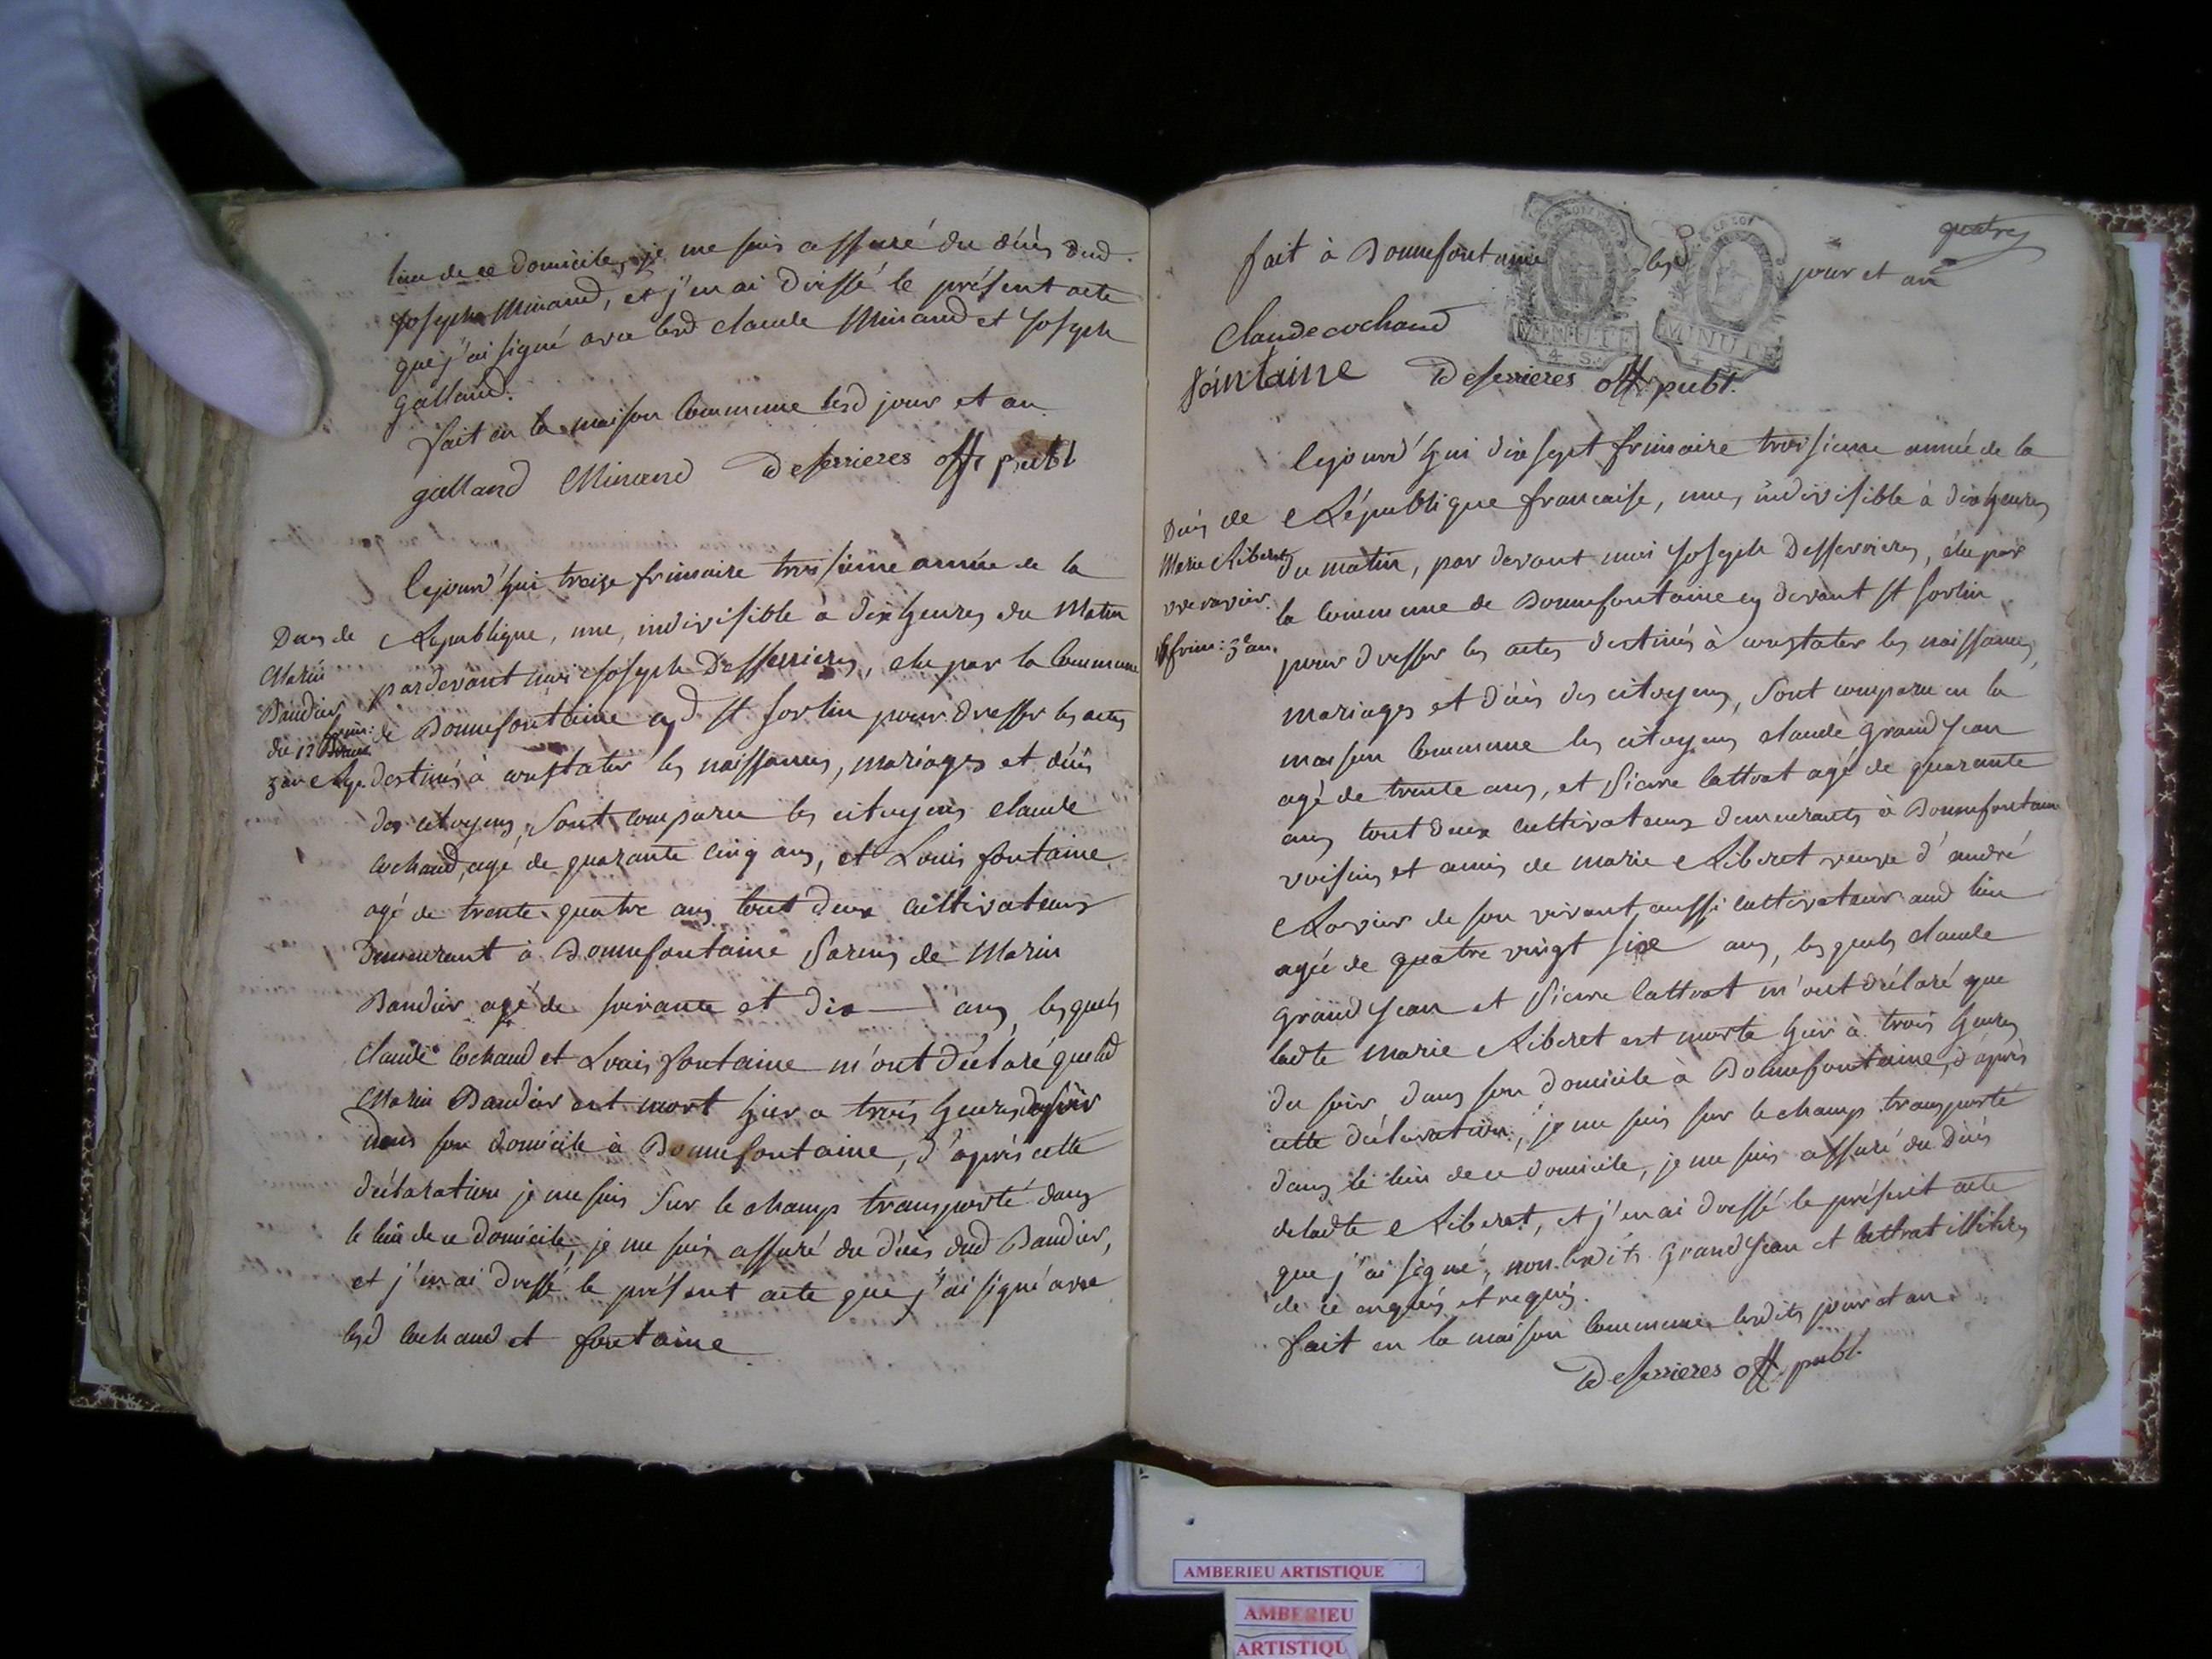 lieu de ce domicile, je me suis assuré du décès dud.
Joseph Minand, et j'en ai dressé le présent acte
que j'ai signé avec lesd claude Minand et Joseph
galland.
fait en la maison Commune lesd jour et an
galland Minand Deserrieres off publ
Cejourd'hui treize frimaire troisième année de la
République, une, indivisible à dix heures du Matin
pardevant moi Joseph Desserrieres, élu par la Commune
de Bonnefontaine cyd St Sorlin pour dresser les actes
destinés à constater les naissances, mariages et décès
des citoyens, Sont comparu les citoyens claude
Cochaud, agé de quarante cinq ans, et Louis fontaine
agé de trente quatre ans tout deux cultivateurs
Demeurant à Bonnefontaine de Marin
Baudier agé de soixante et dix ans, lesquels
Claude Cochaud et Louis fontaine m'ont déclaré que led
Marin Baudier est mort hier a trois heures du soir
dans son domicile à Bonnefontaine, d'après cette
déclaration je me suis Sur le champ transporté dans
le lieu de ce domicile, je me suis assuré du décès dud Baudier,
et j'en ai dressé le présent acte que j'ai signé avec
lesd Cochaud et fontaine
Décès de
Marin
Baudier
du 12 frim:
3 an
quatre
fait à Bonnefontaine lesd jour et an
MINUTE
4. S.
MINUTE
Claude cochaud
fointaine Deserrieres off publ.
Cejourd'hui dix sept frimaire troisieme année de la
République francaise, une, indivisible à dix heures
du matin, par devant moi Joseph Desserrieres, élu par
la Commune de Bonnefontaine cy devant St Sorlin
pour dresser les actes destinés à constater les naissances,
mariages et décès des citoyens, Sont comparu en la
maison Commune les citoyens claude grand Jean
agé de trente ans, et Pierre lattrat agé de quarante
ans tout deux cultivateurs demeurants à Bonnefontaine
voisins et amis de marie Riberet veuve d'andré
Ravier de son vivant aussi cultivateur aud lieu
agée de quatre vingt six ans, les quels claude
grand Jean et Pierre lattrat m'ont déclaré que
ladte marie Riberet est morte hier à trois heures
du soir dans son domicile à Bonnefontaine, d'après
cette déclaration, je me suis sur le champ transporté
dans le lieu de ce domicile, je me suis assuré du Décès
deladte Riberet, et j'en ai dressé le présent acte
que j'ai signé, non lesdits grand Jean et lattrat illitérés
de ce enquis et requis.
fait en la maison Commune lesdits jour et an.
Deserrieres off. publ.
Décès de
Marie Riberet
vve ravier.
16 frim: 3e an.
AMBERIEU ARTISTIQUE
AMBERIEU
ARTISTIQU